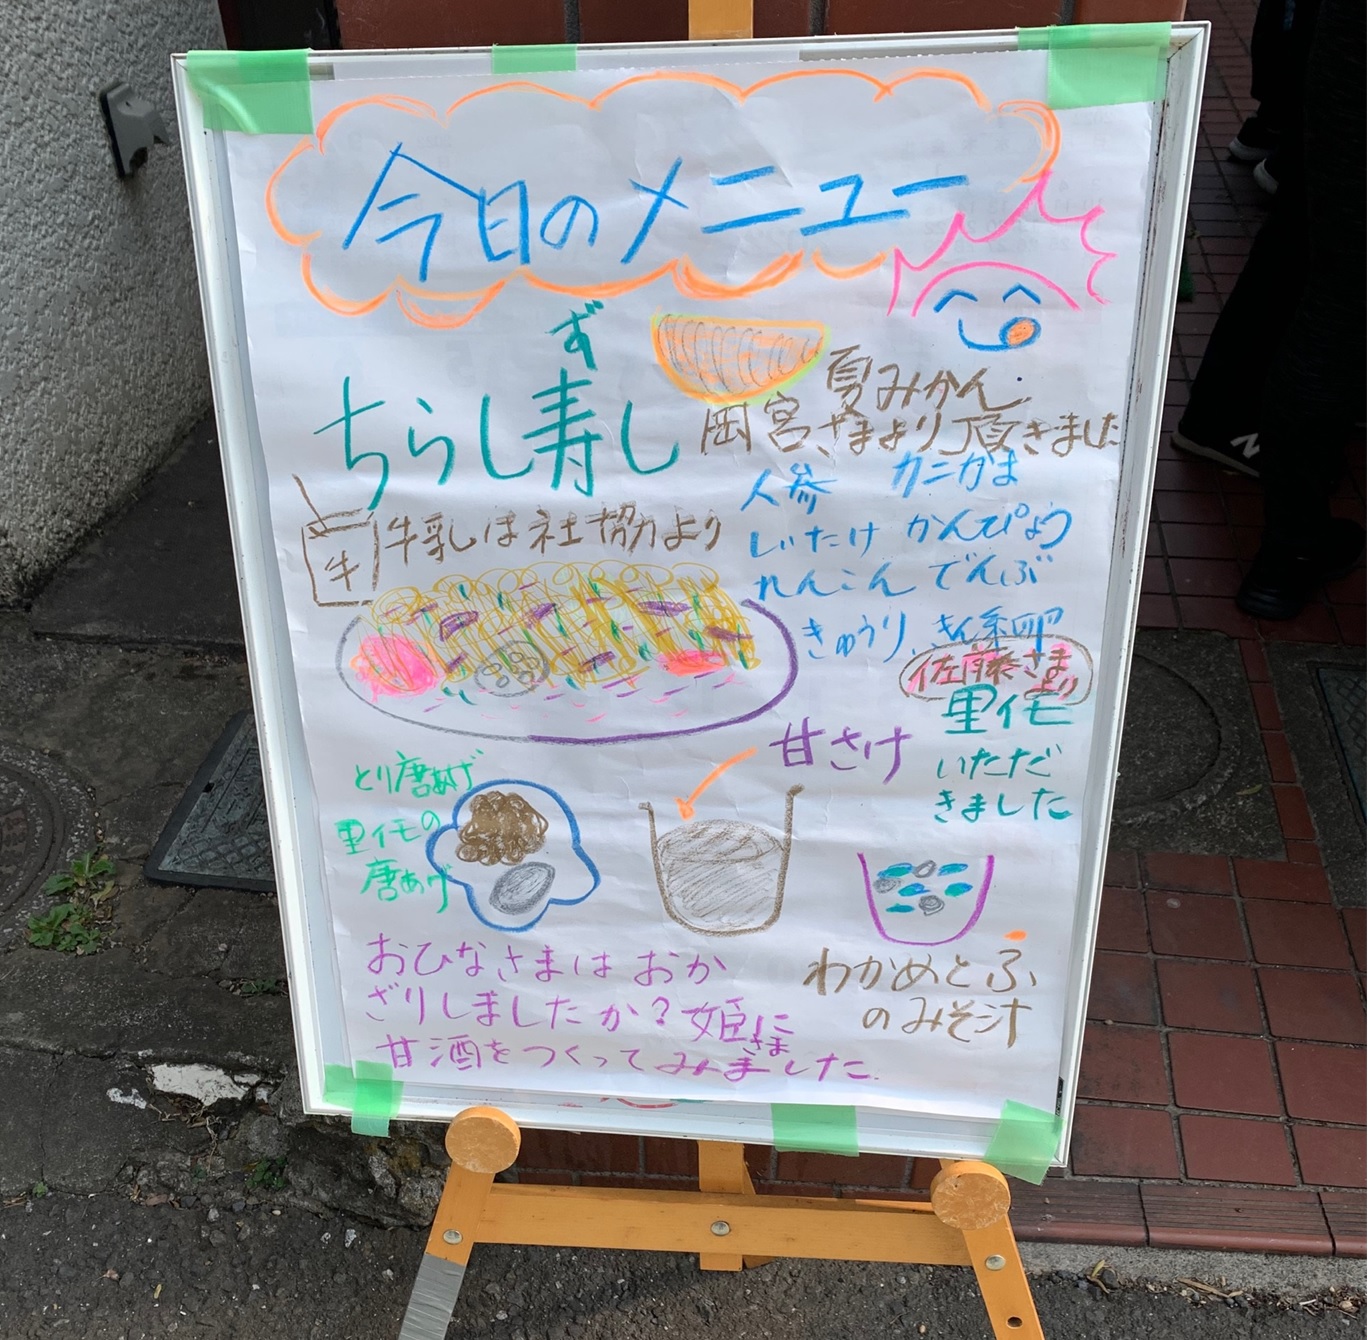 今日のメニュー
ず
ちらし寿し
夏みかん
岡宮さまより頂きました
牛
牛乳は社協より
人参 カニカま
しいたけ かんぴょう
れんこん でんぶ
きゅうり、きん糸卵
佐藤さま
より
里イモ
いただ
きました
甘さけ
とり唐あげ
里イモの
唐あげ
わかめとふ
のみそ汁
おひなさまは おか
ざりしましたか?姫に
さま
甘酒をつくってみました。